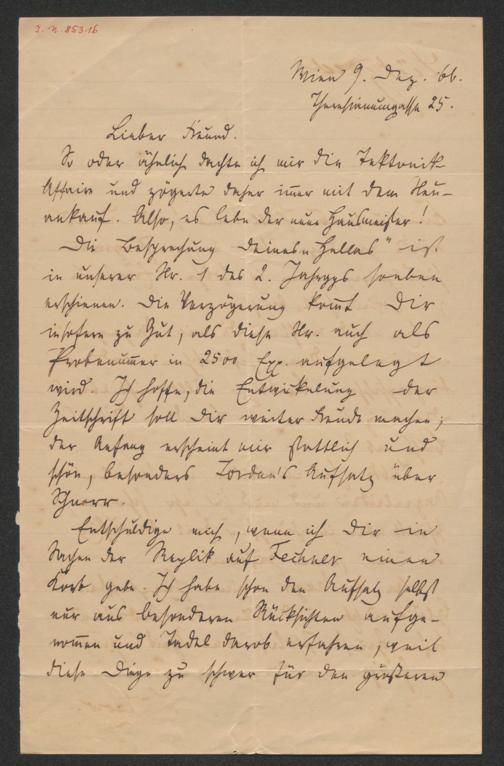 J. N. 85316
Wien 9. Dez. 66.
Theresianumgasse 25.
Lieber Freund.
So oder ähnlich dachte ich mir die Tektonik-
Affaire und zögerte daher immer mit dem Neu-
ankauf. Also, es lebe der neue Hausmeister!
Die Besprechung Deines „Hellas" ist
in unserer Nr. 1 des 2. Jahrggs soeben
erschienen. Die Verzögerung kommt Dir
insofern zu Gut, als diese Nr. auch als
Probenummer in 2500 Exp. aufgelegt
wird. Ich hoffe, die Entwickelung der
Zeitschrift soll Dir weiter Freude machen;
der Anfang erscheint mir stattlich und
schön, besonders Jordan's Aufsatz über
Schnorr.
Entschuldige mich, wenn ich Dir in
Sachen der Replik auf Fechner einen
Korb gebe. Ich habe schon den Aufsatz selbst
nur aus besonderen Rücksichten aufge-
nommen und Tadel darob erfahren, weil
diese Dinge zu schwer für den größeren